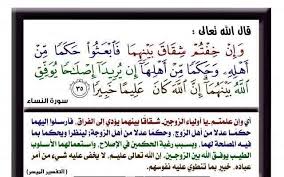 قال الله تعالى :
وَإِنْ خِفْتُمْ شِقَاقَ بَيْنِهِمَا فَٱبْعَثُوا۟ حَكَمًا مِّنْ
أَهْلِهِۦ وَحَكَمًا مِّنْ أَهْلِهَآ إِن يُرِيدَآ إِصْلَٰحًا يُوَفِّقِ
ٱللَّهُ بَيْنَهُمَآ إِنَّ ٱللَّهَ كَانَ عَلِيمًا خَبِيرًا ٣٥
سورة النساء
أي وإن علمتم ـ يا أولياء الزوجين ـ شقاقا بينهما يؤدي إلى الفراق، فأرسلوا إليهما
حكمًا عدلا من أهل الزوج، وحكما عدلا من أهل الزوجة؛ لينظرا ويحكما بما
فيه المصلحة لهما، وبسبب رغبة الحكمين في الإصلاح، واستعمالهما الأسلوب
الطيب يوفق الله بين الزوجين. إن الله تعالى عليم، لا يخفى عليه شيء من أمر
عباده، خبير بما تنطوي عليه نفوسهم.
(التفسير الميسر)